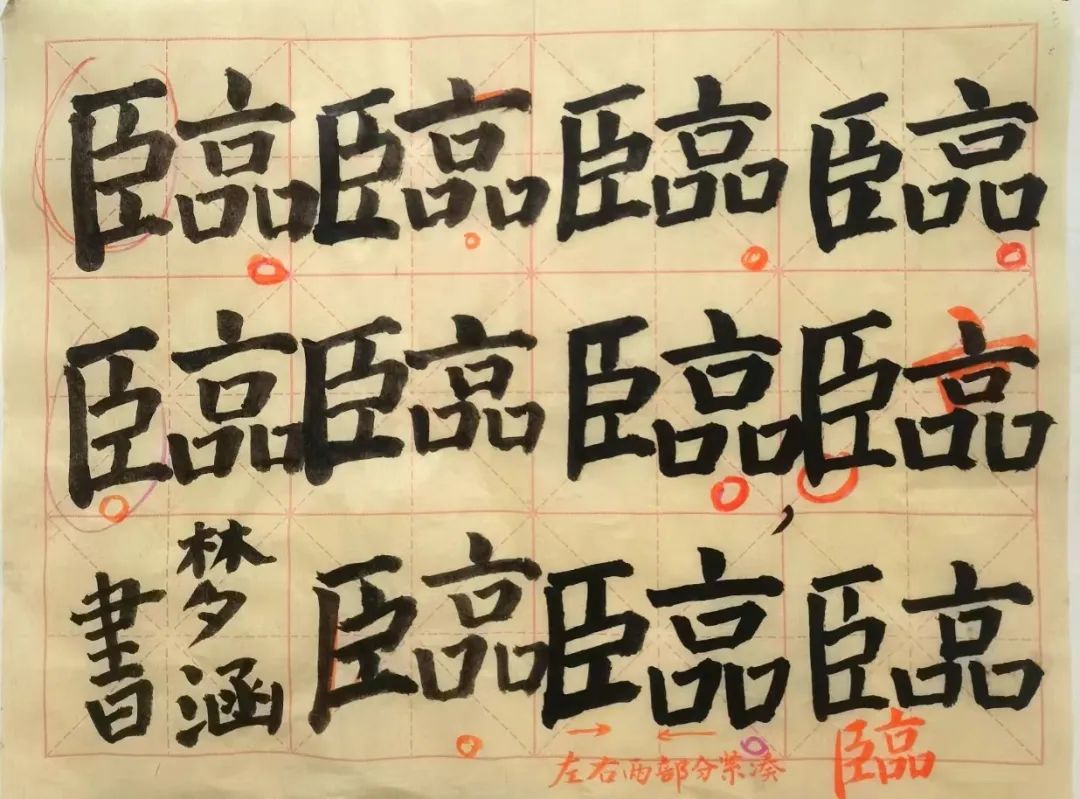 臨臨臨臨
臨臨臨臨
臨臨臨
梦涵
書
左右两部分紧凑
臨